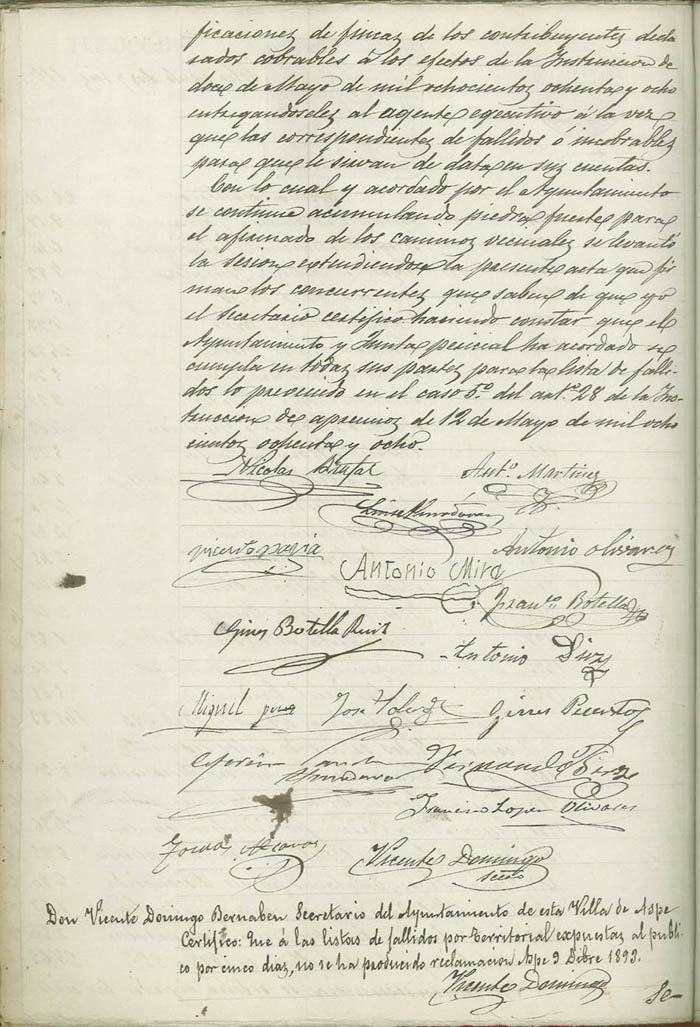 ficaciones de fincas de los contribuyentes decla
rados cobrables á los efectos de la Instruccion de
doce de Mayo de mil ochocientos ochenta y ocho
entregandoseles al agente egecutivo á la vez
que las correspondientes de fallidos ó incobrables
para que le sirvan de data en sus cuentas.
Con lo cual y acordado por el Ayuntamiento
se continue acumulando piedra fuerte para
el afirmado de los caminos vecinales se levantó
la sesion extendiendose la presente acta que fir
man los concurrentes que saben de que yo
el Secretario certifico haciendo constar que el
Ayuntamiento y Junta pericial ha acordado se
cumpla en todas sus partes para la lista de falli
dos lo prevenido en el caso 5.º del art.º 28 de la Ins
truccion de apremios de 12 de Mayo de mil ocho
cientos ochenta y ocho.
Nicolas Brufal Ant.º Martinez
Vicente pavia Antonio Olivares
Antonio Mira
Fran.co Botella
Gines Botella Ruiz
Antonio Diez
Miguel José Gines
Fernando
Francisco Lopez Olivares
Tomas Alcaraz Vicente Domingo
secrto
Don Vicente Domingo Bernabeu Secretario del Ayuntamiento de esta Villa de Aspe
Certifico: Que á las listas de fallidos por territorial expuestas al públi
co por cinco dias, no se ha producido reclamacion Aspe 9 Dibre 1893.
Vicente Domingo
Se-